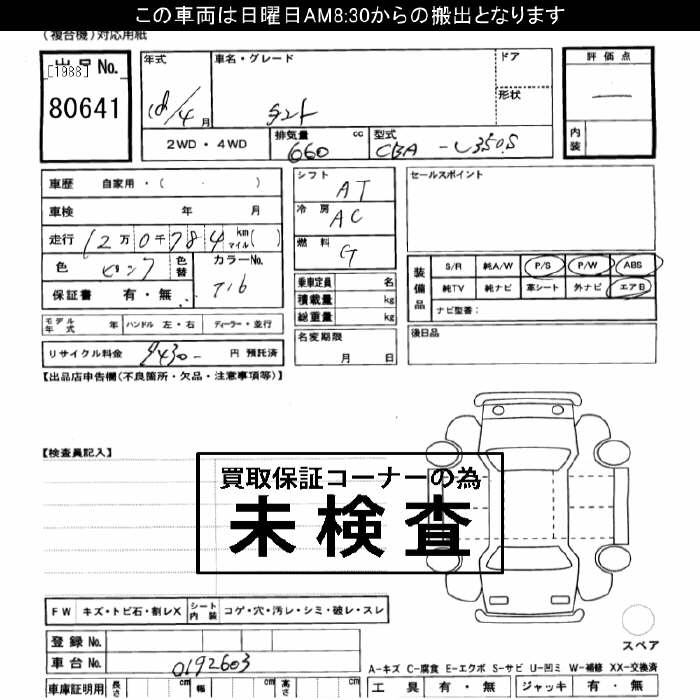 この車両は日曜日AM8:30からの搬出となります
(複合機)対応用紙
出品No.
[1988]
80641
年式
月
車名・グレード
タント
ドア
形状
評価点
内装
2WD・4WD
排気量 cc
660
型式
CBA - L350S
車歴 自家用・( ・ )
車検 年 月
走行 12万0千784 km マイル( )
色 ピンク
色替
カラーNo.
T16
保証書 有・無
シフト AT
冷房 AC
燃料 G
乗車定員 名
積載量 kg
総重量 kg
セールスポイント
装備品
S/R 純A/W P/S P/W ABS
純TV 純ナビ 革シート 外ナビ エアB
ナビ型番:
モデル年式 年 ハンドル 左・右 ディーラー・並行
リサイクル料金 9430- 円 預託済
名変期限
月 日
後日品
【出品店申告欄(不良箇所・欠品・注意事項等)】
【検査員記入】
買取保証コーナーの為
未検査
FW キズ・トビ石・割レX シート内装 コゲ・穴・汚レ・シミ・破レ・スレ
登録No.
車台No. 0192603
車庫証明用 長さ cm 幅 cm 高さ cm
スペア
A-キズ C-腐食 E-エクボ S-サビ U-凹ミ W-補修 XX-交換済
工具 有・無 ジャッキ 有・無